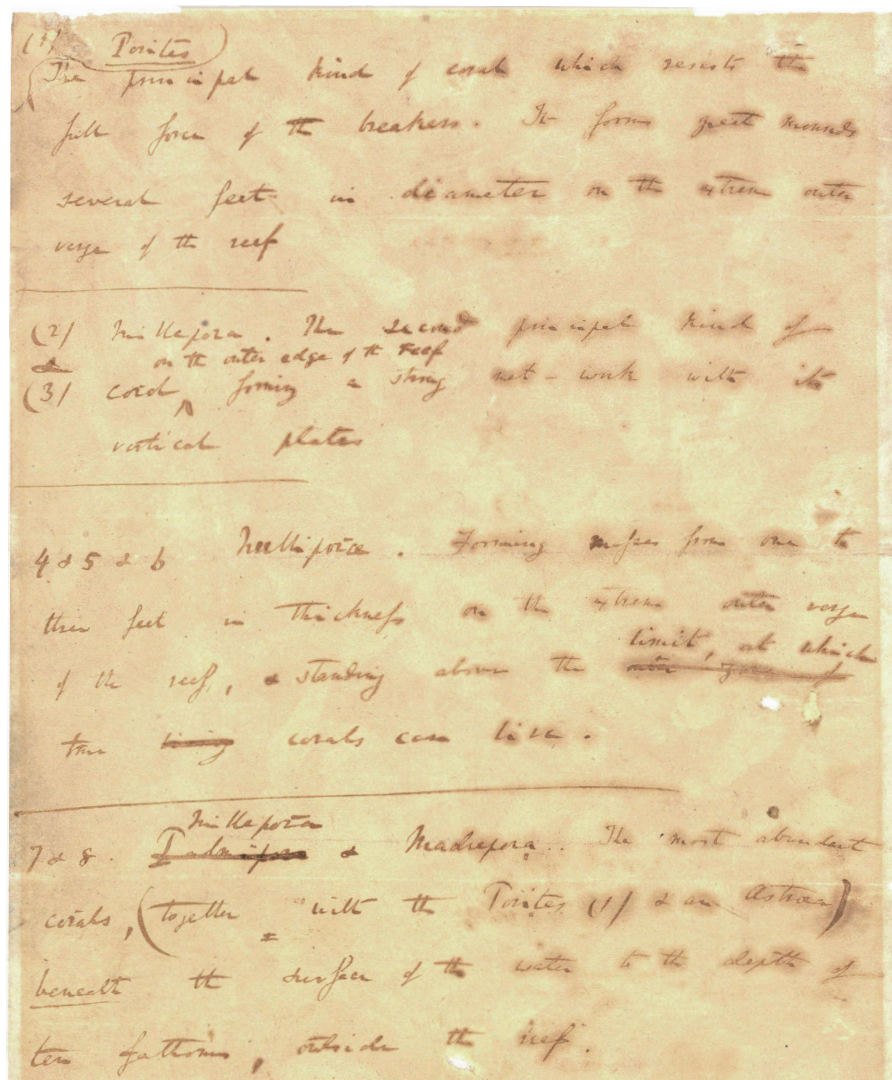 (1) Porites
The principal kind of coral which resists the
full force of the breakers. It forms great mounds
several feet in diameter on the extreme outer
verge of the reef
(2) Millepora. The second principal kind of
& on the outer edge of the reef
(3) coral, forming a strong net-work with its
vertical plates
4 & 5 & 6 Nulliporæ. Forming masses from one to
three feet in thickness on the extreme outer verge
limit, at which
of the reef, & standing above the
true living corals can live.
Millepora
7 & 8. & Madrepora.. The most abundant
corals, (together with the Porites (1) & an Astrea)
beneath the surface of the water to the depth of
ten fathoms, outside the reef.